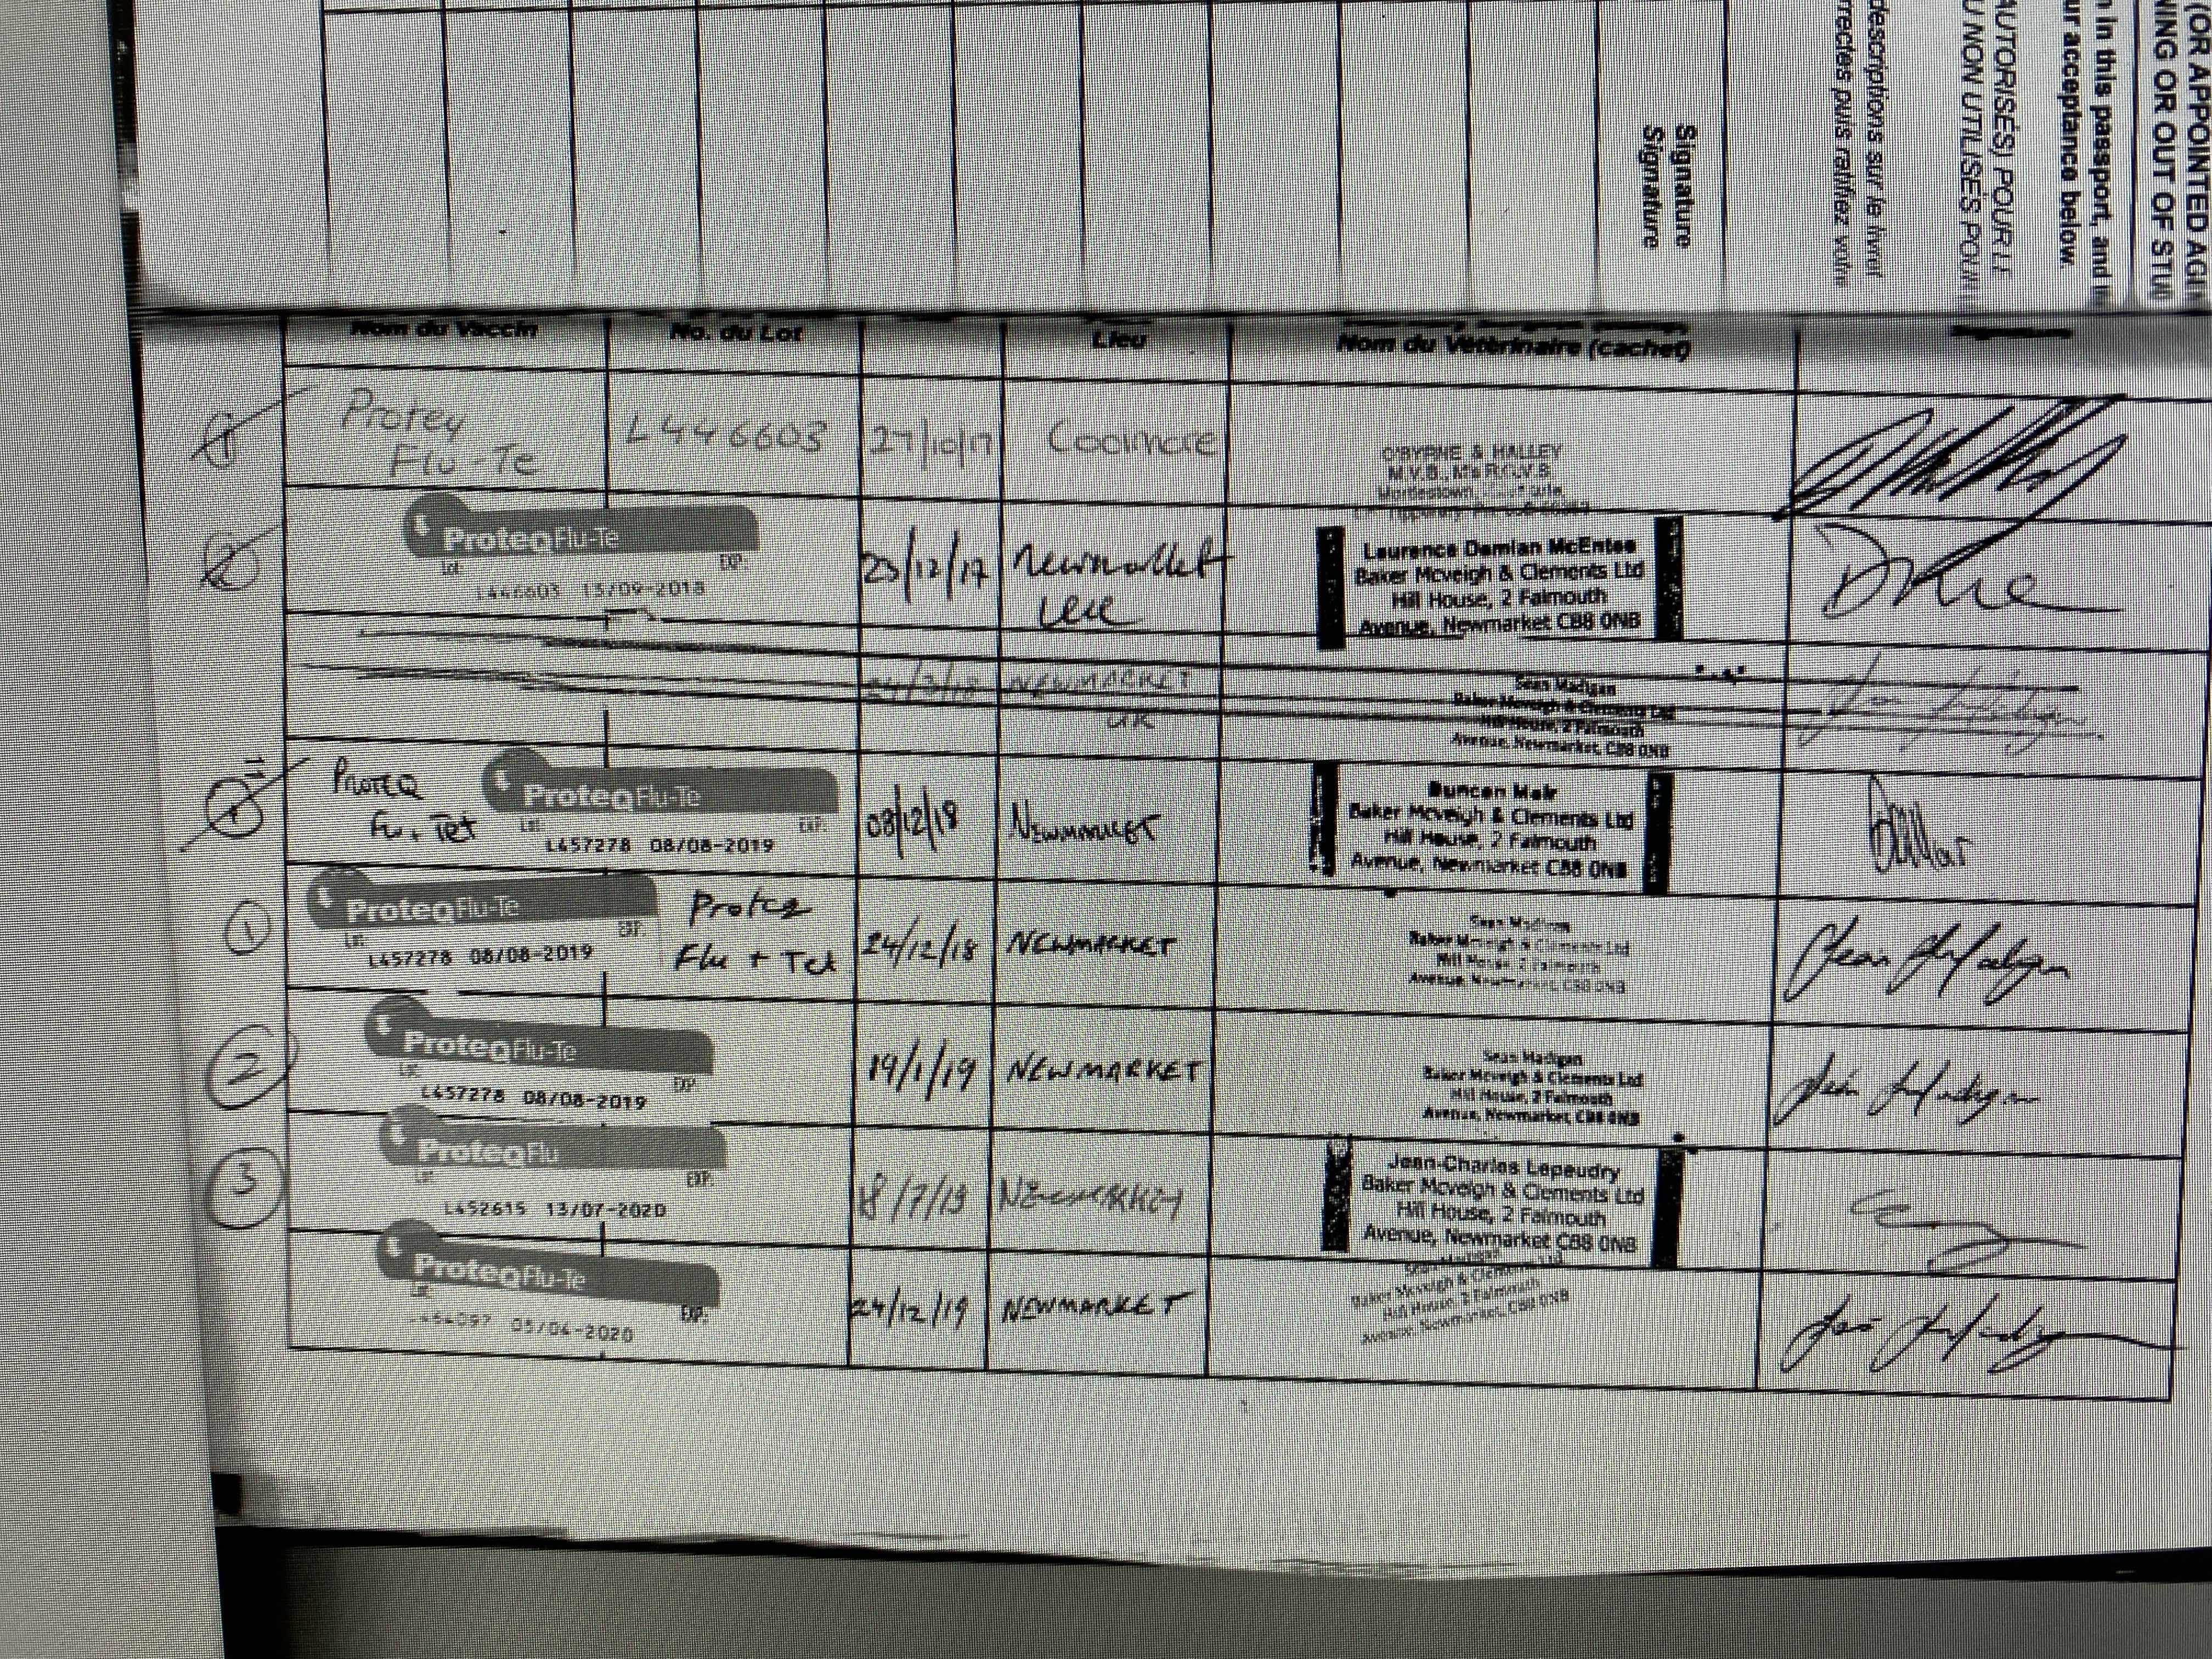 (OR APPOINTED
NING OR OUT OF
n in this passport, and
ur acceptance below.
AUTORISÉS) POUR
U NON UTILISÉS POUR
descriptions sur le livret
rectes puis ratifiez
Signature
Signature
Nom du Vaccin No. du Lot Lieu Nom du Vétérinaire (cachet) Signature
1 Protey
Flu-Te
L446603 27/10/17 Coolmore
O'BYRNE & HALLEY
M.V.B., M.R.C.V.S.
2 ProteqFlu-Te
Lot: EXP:
L446603 15/09-2018
23/12/17 Newmarket
Laurence Damian McEntee
Baker Mcveigh & Clements Ltd
Hill House, 2 Falmouth
Avenue, Newmarket CB8 0NB
NEWMARKET
UK
Sean Madigan
Baker Mcveigh & Clements Ltd
Hill House, 2 Falmouth
Avenue, Newmarket, CB8 0NB
Proteq
Flu, Tet
ProteqFlu-Te
Lot: EXP:
L457278 08/08-2019
08/12/18 Newmarket
Duncan Moir
Baker Mcveigh & Clements Ltd
Hill House, 2 Falmouth
Avenue, Newmarket CB8 0NB
1 ProteqFlu-Te
Lot: EXP:
L457278 08/08-2019
Proteq
Flu + Tet
24/12/18 NEWMARKET
Sean Madigan
Baker Mcveigh & Clements Ltd
Hill House, 2 Falmouth
Avenue, Newmarket, CB8 0NB
2 ProteqFlu-Te
Lot: EXP:
L457278 08/08-2019
19/1/19 NEWMARKET
Sean Madigan
Baker Mcveigh & Clements Ltd
Hill House, 2 Falmouth
Avenue, Newmarket, CB8 0NB
3 ProteqFlu
Lot: EXP:
L452615 13/07-2020
8/7/19 NEWMARKET
Jean-Charles Lepeudry
Baker Mcveigh & Clements Ltd
Hill House, 2 Falmouth
Avenue, Newmarket CB8 0NB
ProteqFlu-Te
Lot: EXP:
05/04-2020
24/12/19 NEWMARKET
Baker Mcveigh & Clements Ltd
Hill House, 2 Falmouth
Avenue, Newmarket, CB8 0NB